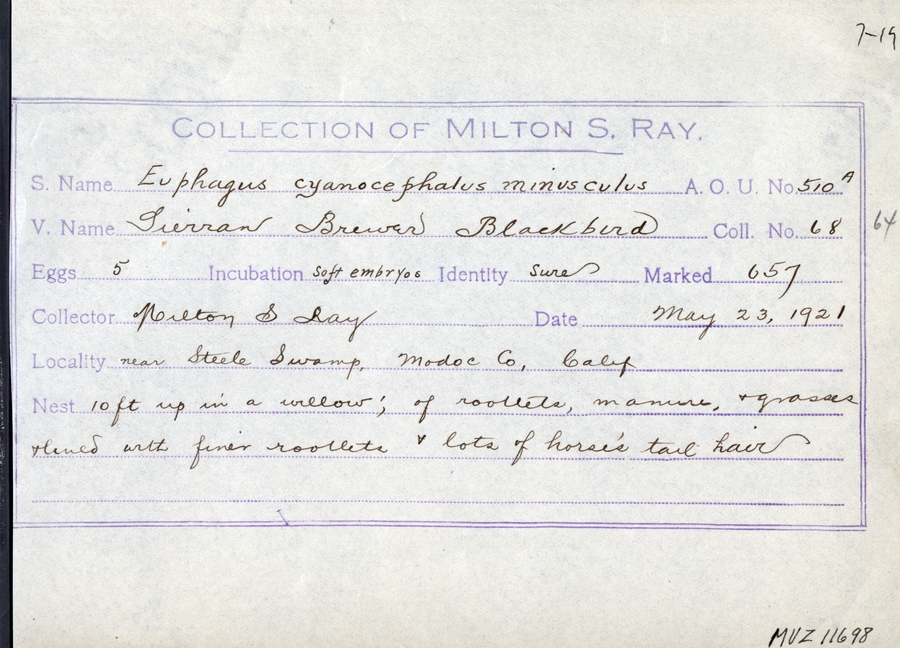 7-19
COLLECTION OF MILTON S. RAY.
S. Name Euphagus cyanocephalus minusculus A. O. U. No. 510A
V. Name Sierran Brewer Blackbird Coll. No. 68
64
Eggs 5 Incubation soft embryos Identity sure Marked 657
Collector Milton S Ray Date May 23, 1921
Locality near Steele Swamp, Modoc Co, Calif
Nest 10 ft up in a willow; of rootlets, manure, + grasses
+ lined with finer rootlets + lots of horse's tail hair
MVZ 11698